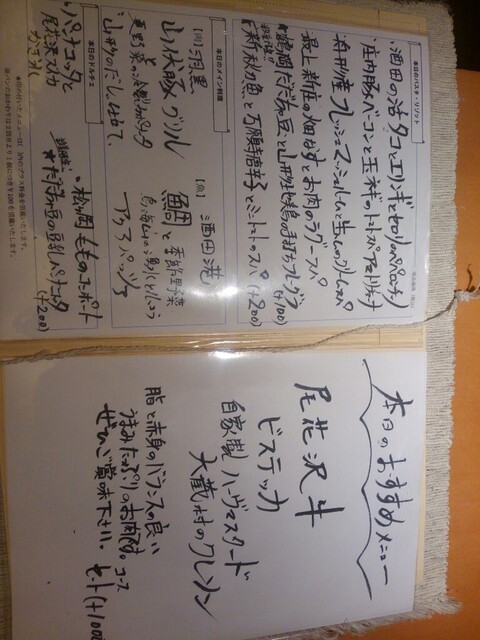 本日のパスタ・リゾット
・酒田の活タコとエリンギとセロリのペペロンチーノ
・庄内豚ベーコンと玉ネギのトマトスパ アマトリチャーナ
・舟形産フレッシュマッシュルームと生ハムのクリームスパ
最上新庄の畑なすとお肉のラグースパ
鶴岡だだちゃ豆と山形牡蠣の (+100)
新秋刀魚と万願寺唐辛子とミニトマトのスパ (+200)
本日のメイン料理
【肉】 羽黒
山伏豚グリル
夏野菜の
山形のだし仕立て、
【魚】 酒田港
鯛と季節野菜
鳥海山の湧水という
アクアパッツァ
本日のドルチェ
・パンナコッタと
尾花沢スイカ
・松岡ももコンポート
・だだちゃ豆の豆乳パンナコッタ (+200)
本日のおすすめメニュー
尾花沢牛
ビステッカ
自家製ハーブマスタード
大蔵村のクレソン
脂と赤身のバランスの良い
うまみたっぷりのお肉です。
ぜひご賞味下さい。
コース
セット(+100